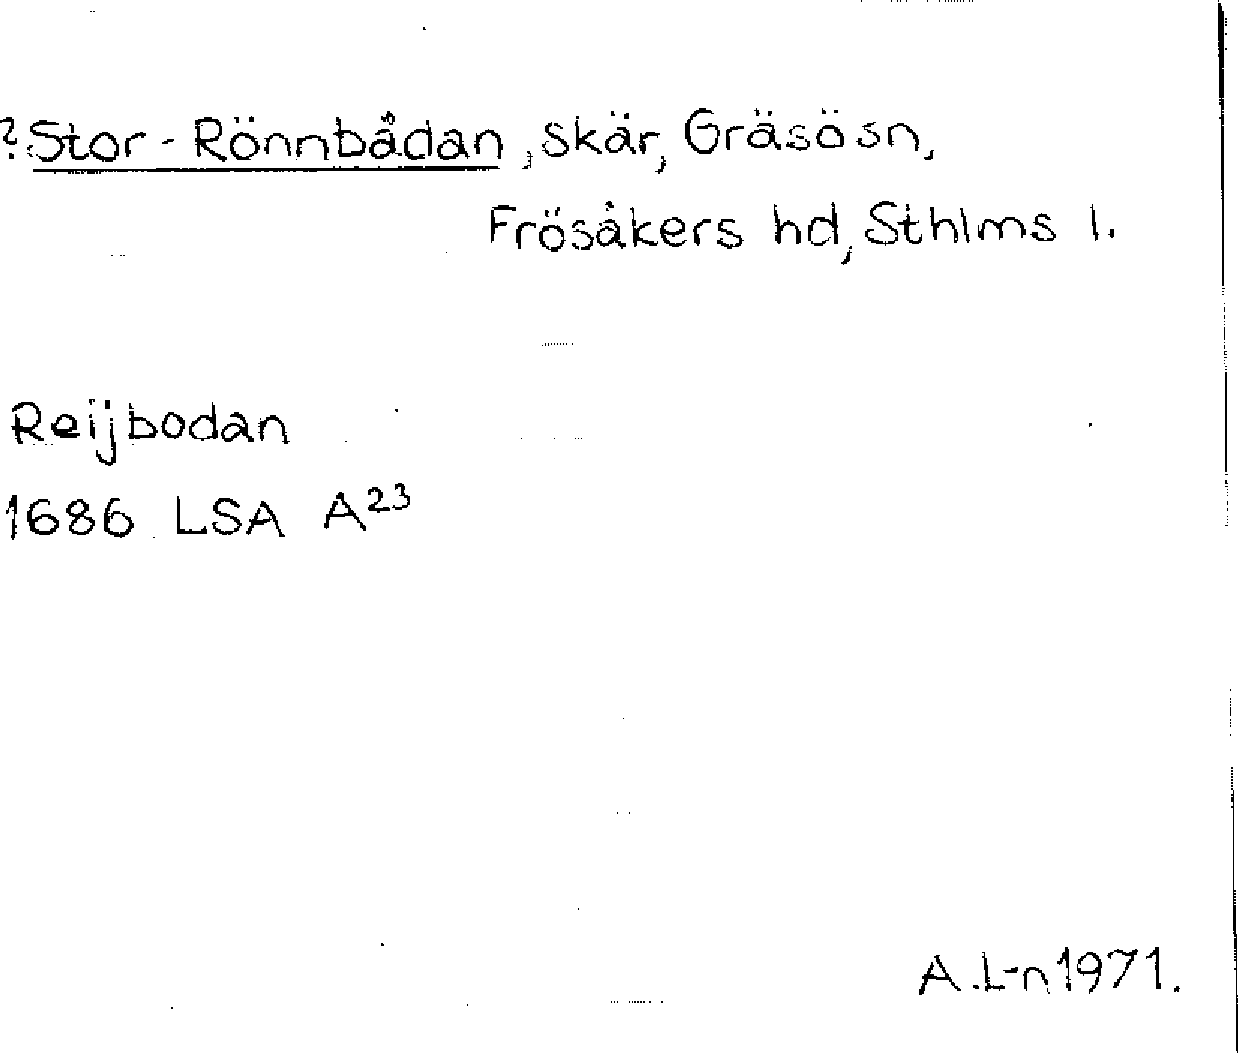 ? Stor-Rönnbådan, skär, Gräsö sn,
Frösåkers hd, Sthlms l.
Reijbodan
1686 LSA A²³
A.L-n 1971.